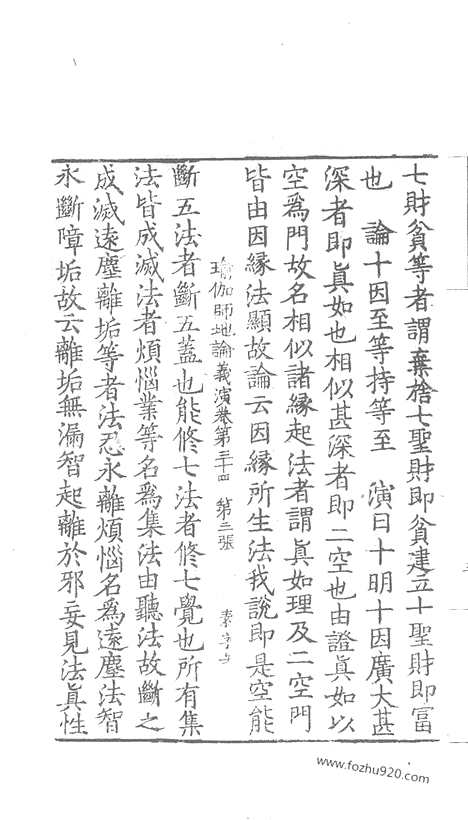 七財貧等者謂棄捨七聖財即貧建立十聖財即富
也　論十因至等持等至　演曰十明十因廣大甚
深者即真如也相似甚深者即二空也由證真如以
空爲門故名相似諸緣起法者謂真如理及二空門
皆由因緣法顯故論云因緣所生法我說即是空能
瑜伽師地論義演卷第三十四　第三張　素字号
斷五法者斷五蓋也能修七法者修七覺也所有集
法皆成滅法者煩惱業等名爲集法由聽法故斷之
成滅遠塵離垢等者法忍永離煩惱名爲遠塵法智
永斷障垢故云離垢無漏智起離於邪妄見法真性
www.fozhu920.com